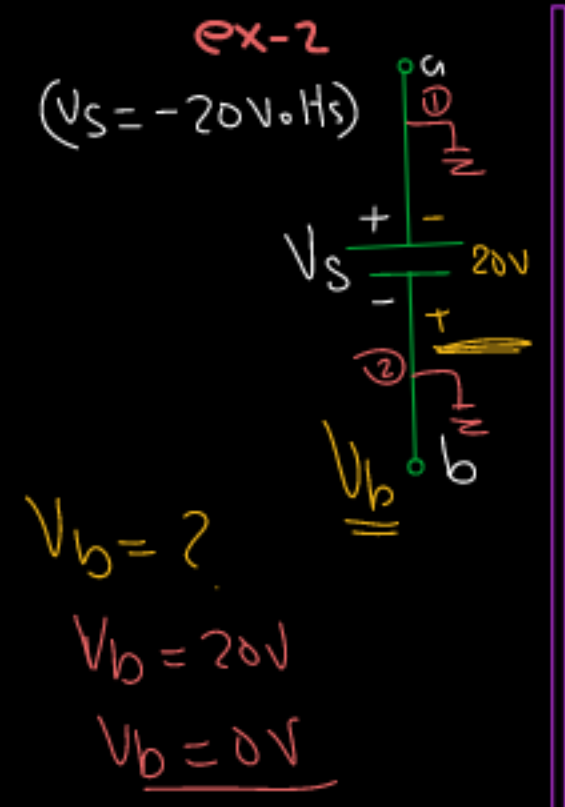 ex-2
(Vs = -20Volts)
a
①
+ -
Vs
20V
- +
②
b
Vb
Vb = ?
Vb = 20V
Vb = 0V